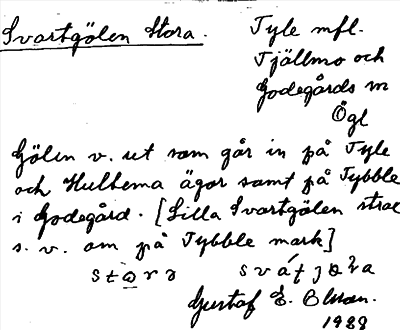 Svartgölen Stora. Tyle mfl.
Tjällmo och
Godegårds sn
Ögl
Gölen v. ut som går in på Tyle
och Hultema ägor samt på Tybble
i Godegård. [Lilla Svartgölen strax
s. v. om på Tybble mark]
Gustaf E. Olsson.
1988